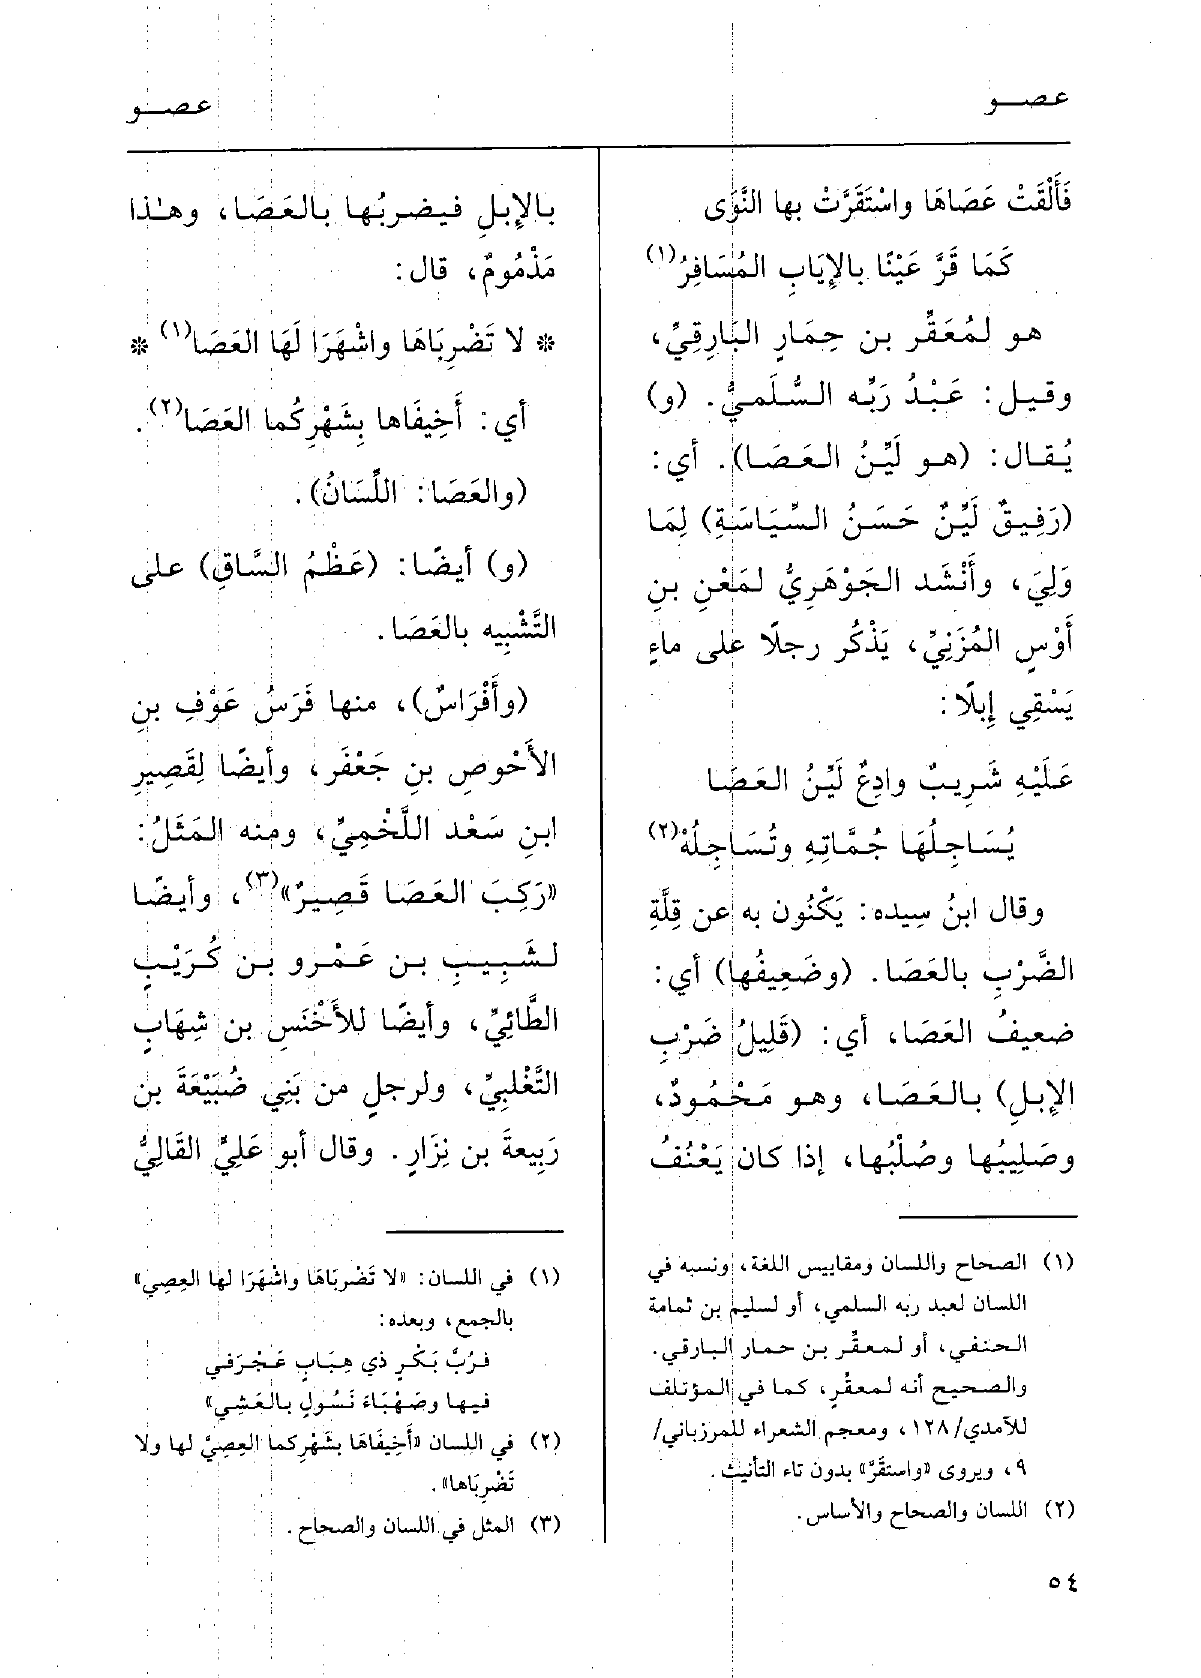 عصو
عصو
فَأَلْقَتْ عَصَاهَا واسْتَقَرَّتْ بها النَّوَى
كَمَا قَرَّ عَيْنًا بالإِيَابِ المُسَافِرُ(١)
هو لمُعَقِّر بن حِمَارٍ البَارِقِيِّ،
وقيل: عَبْدُ رَبِّه السُّلَميُّ. (و)
يُقال: (هو لَيِّنُ العَصَا). أي:
(رَفِيقٌ لَيِّنٌ حَسَنُ السِّيَاسَةِ) لِمَا
وَلِيَ، وأَنْشَد الجَوْهَرِيُّ لمَعْنِ بنِ
أَوْسٍ المُزَنِيِّ، يَذْكُر رجلًا على ماءٍ
يَسْقِي إِبلًا:
عَلَيْهِ شَرِيبٌ وادِعٌ لَيِّنُ العَصَا
يُسَاجِلُهَا جُمَّاتِهِ وتُسَاجِلُهْ(٢)
وقال ابنُ سِيده: يَكْنُون به عن قِلَّةِ
الضَّرْبِ بالعَصَا. (وضَعِيفُها) أي:
ضعيفُ العَصَا، أي: (قَلِيلُ ضَرْبِ
الإِبلِ) بالعَصَا، وهو مَحْمُودٌ،
وصَلِيبُها وصُلْبُها، إذا كان يَعْنُفُ
(١) الصحاح واللسان ومقاييس اللغة، ونسبه في
اللسان لعبد ربه السلمي، أو لسليم بن ثمامة
الحنفي، أو لمعقِّر بن حمار البارقي.
والصحيح أنه لمعقِّر، كما في المؤتلف
للآمدي/١٢٨، ومعجم الشعراء للمرزباني/
٩، ويروى «واستقَرَّ» بدون تاء التأنيث.
(٢) اللسان والصحاح والأساس.
بالإِبلِ فيضربُها بالعَصَا، وهذا
مَذْمُومٌ، قال:
* لا تَضْرِبَاهَا واشْهَرَا لَهَا العَصَا(١) *
أي: أَخِيفَاها بِشَهْرِكُما العَصَا(٢).
(والعَصَا: اللِّسَانُ).
(و) أيضًا: (عَظْمُ السَّاقِ) على
التَّشْبِيه بالعَصَا.
(وأَفْرَاسٌ)، منها فَرَسُ عَوْفِ بنِ
الأَحْوصِ بنِ جَعْفَر، وأيضًا لِقَصِيرِ
ابنِ سَعْد اللَّخْمِيِّ، ومنه المَثَلُ:
«رَكِبَ العَصَا قَصِيرٌ»(٣)، وأيضًا
لشَبِيبِ بنِ عَمْرِو بنِ كُرَيْبٍ
الطَّائِيِّ، وأيضًا للأَخْنَسِ بن شِهَابٍ
التَّغْلبِيِّ، ولرجلٍ من بَنِي ضُبَيْعَةَ بن
رَبِيعةَ بن نِزَارٍ. وقال أبو عَلِيٍّ القَالِيُّ
(١) في اللسان: «لا تَضْربَاهَا واشْهَرَا لها العِصِي»
بالجمع، وبعده:
فرُبَّ بَكْرٍ ذي هِبَابٍ عَجْرَفي
فيها وصَهْبَاءَ نَسُولٍ بالعَشِي»
(٢) في اللسان «أَخِيفَاهَا بشَهْرِكما العِصِيَّ لها ولا
تَضْرِبَاها».
(٣) المثل في اللسان والصحاح.
٥٤